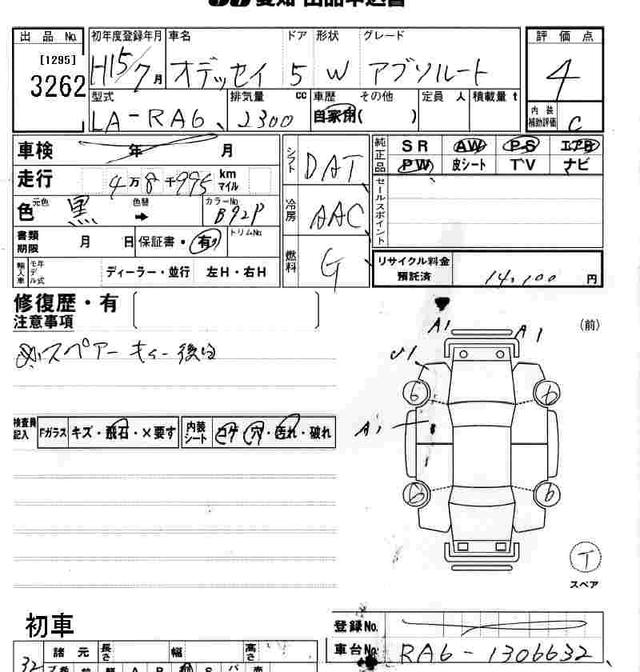 愛知 出品申込書
出品 No.
[1295]
3262
初年度登録年月 車名 ドア 形状 グレード
H15/7月 オデッセイ 5 W アブソルート
型式 排気量 cc 車歴 その他 定員 人 積載量 t
LA-RA6 2300 自家用( )
評価点
4
内装補助評価 C
車検 年 月
走行 4万8千995 km マイル
色 元色 黒 色替 ➡ カラーNo. B92P
書類期限 月 日 保証書・有 トリムNo.
輸入車 モデル年式 ディーラー・並行 左H・右H
シフト DAT
冷房 AAC
燃料 G
純正品 SR AW PS エアB
PW 皮シート TV ナビ
セールスポイント
リサイクル料金預託済 14,100 円
修復歴・有
注意事項
スペアーキー後日
検査員記入 Fガラス キズ・飛石・×要す 内装シート コゲ・穴・汚れ・破れ
(前)
A1 A1
A1
6 6
6 6
T
スペア
初車
登録No.
車台No. RA6-1306632
諸元 長さ 幅 高さ
32